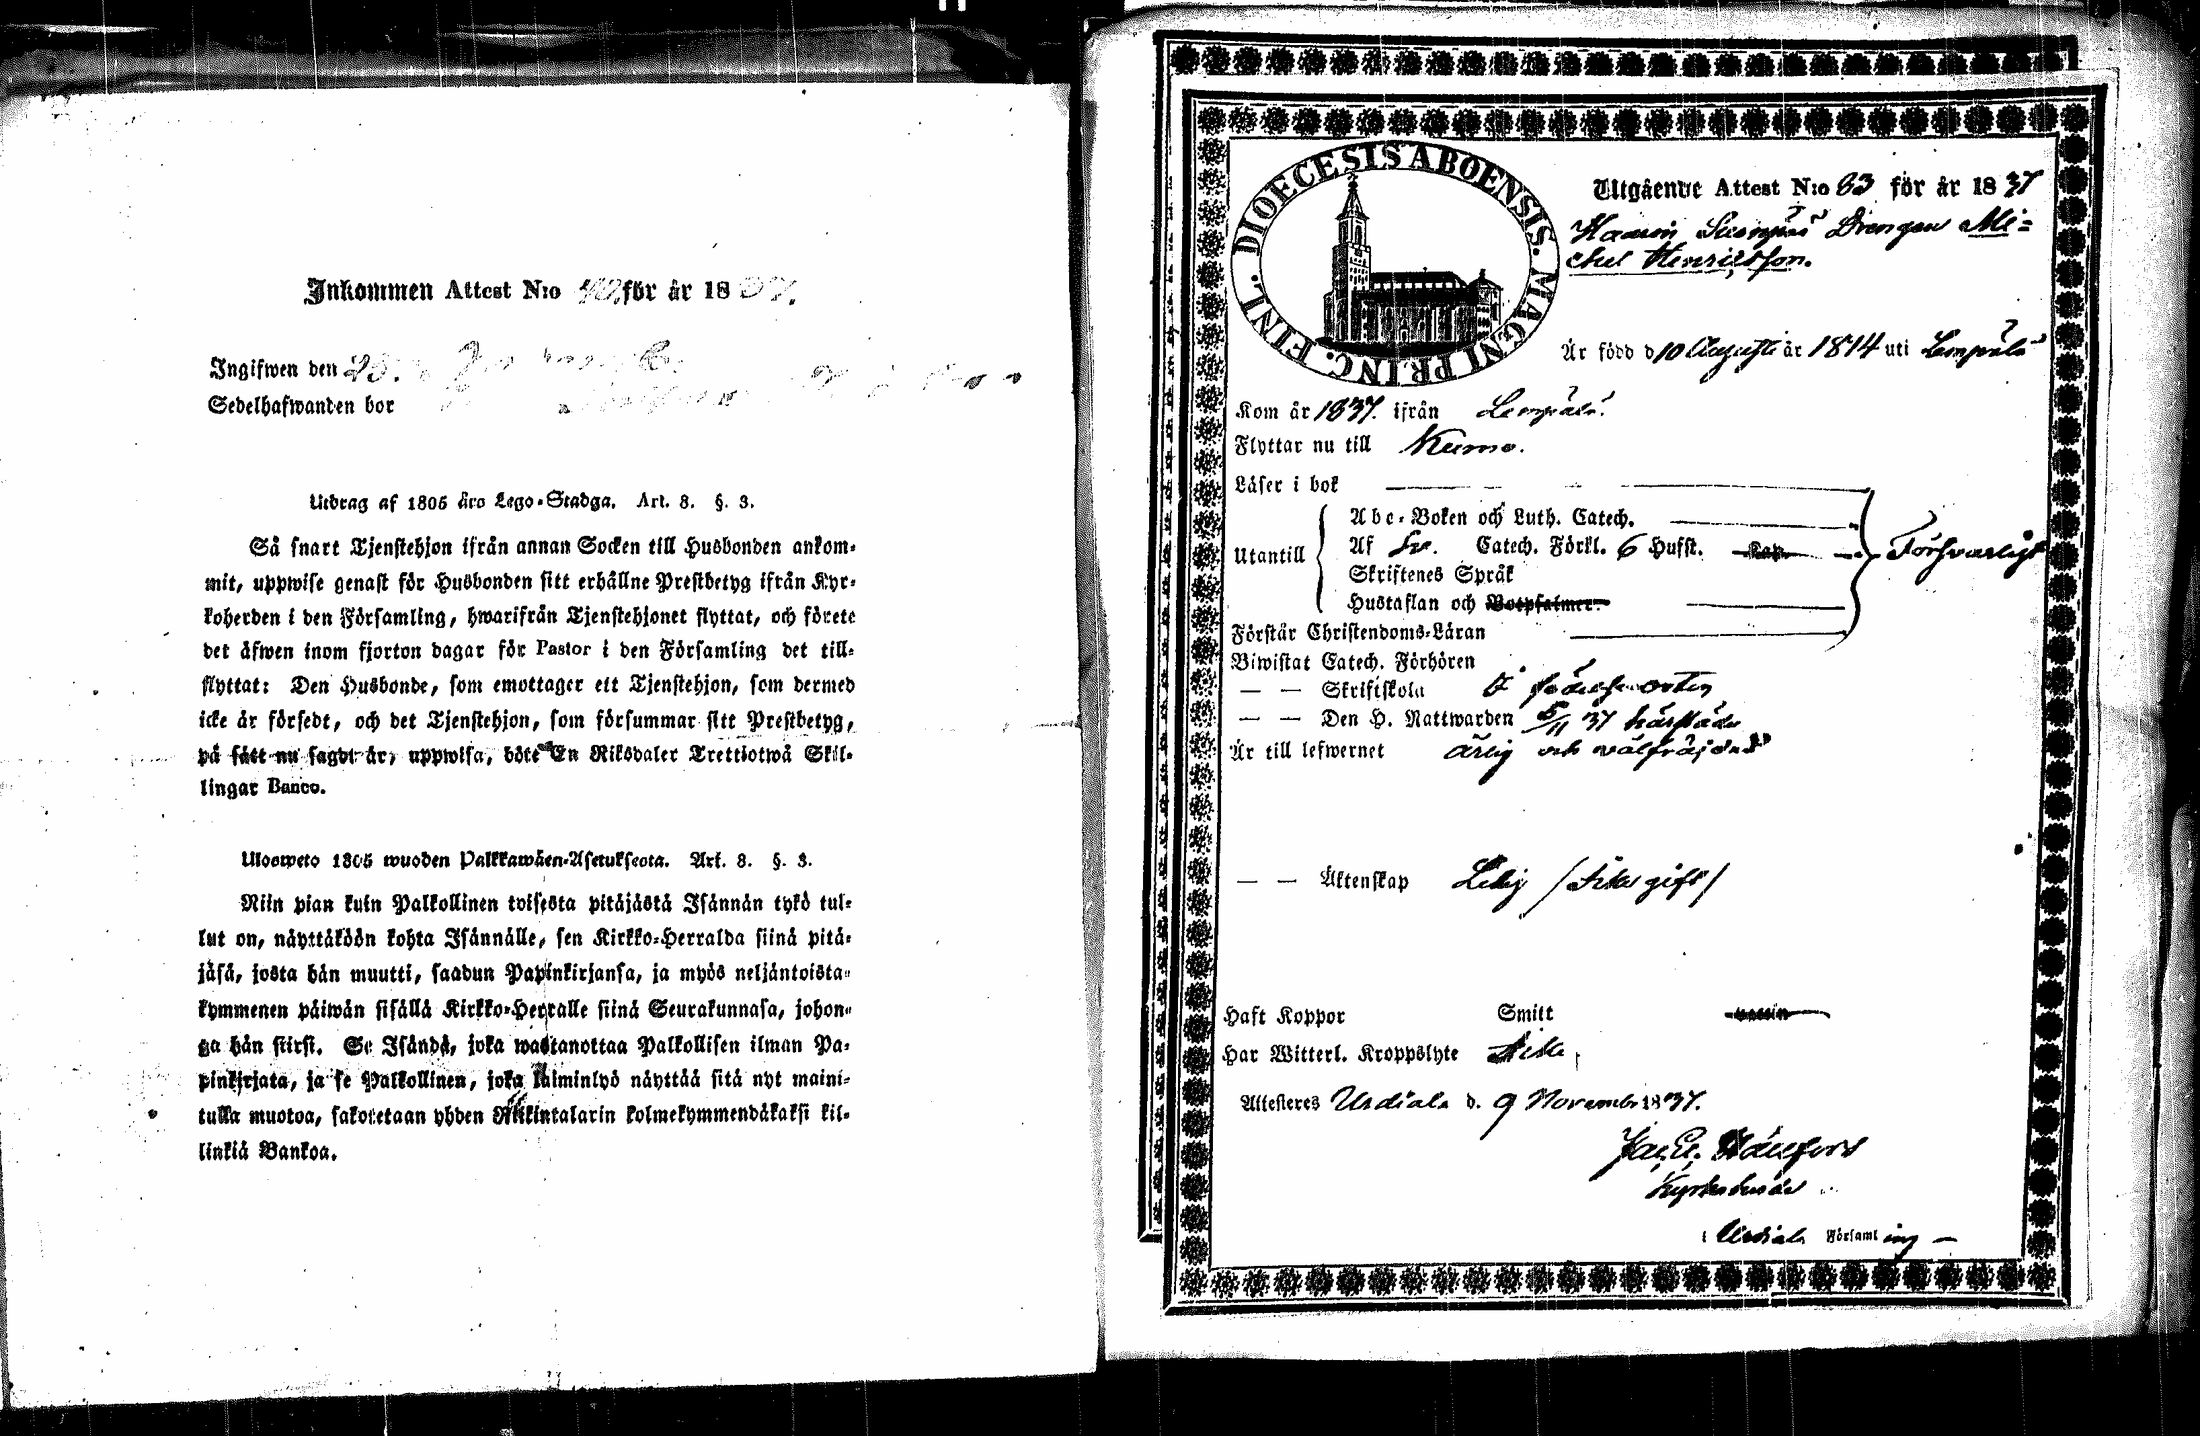 Inkommen Attest N:o för år 18 37.
Ingifwen den 23.
Sedelhafwanden bor
Utdrag af 1805 års Lego-Stadga. Art. 8. §. 3.
Så snart Tjenstehjon ifrån annan Socken till Husbonden ankom-
mit, uppwise genast för Husbonden sitt erhållne Prestbetyg ifrån Kyr-
koherden i den Församling, hwarifrån Tjenstehjonet flyttat, och förete
det äfwen inom fjorton dagar för Pastor i den Församling det till-
flyttat: Den Husbonde, som emottager ett Tjenstehjon, som dermed
icke är försedt, och det Tjenstehjon, som försummar sitt Prestbetyg,
på sätt nu sagdt är, uppwisa, böte En Riksdaler Trettiotwå Skil-
lingar Banco.
Ulosweto 1805 wuoden Palkkawäen-Asetuksesta. Art. 8. §. 3.
Niin pian kuin Palkollinen toisesta pitäjästä Isännän tykö tul-
lut on, näyttäköön kohta Isännälle, sen Kirkko-Herralda siinä pitä-
jäsä, josta hän muutti, saadun Papinkirjansa, ja myös neljäntoista-
kymmenen päiwän sisällä Kirkko-Herralle siinä Seurakunnasa, johon-
ga hän siirsi. Se Isändä, joka wastanottaa Palkollisen ilman Pa-
pinkirjata, ja se Palkollinen, joka laiminlyö näyttää sitä nyt maini-
tulla muotoa, sakotetaan yhden Riikintalarin kolmekymmendäkaksi kil-
linkiä Bankoa.
DIOECESIS ABOENSIS. MAGNI PRINC. FINL.
Utgående Attest N:o 83 för år 1837
Drengen Mi=
chel Henricsson.
Är född d 10 Augusti år 1814 uti Lempälä
Kom år 1837. ifrån Lempälä.
Flyttar nu till Kumo.
Läser i bok
Abc-Boken och Luth. Catech.
Utantill Af Sv. Catech. Förkl. 6 Hufst. Kap. Försvarligt
Skriftenes Språk
Hustaflan och Botpsalmer.
Förstår Christendoms-Läran
Biwistat Catech. Förhören
— — Skriftskola I födelseorten
— — Den H. Nattwarden 5/11 37 härstädes
Är till lefwernet ärlig och wälfräjdad
— — Äktenskap Ledig /Icke gift/
Haft Koppor Smitt
Har Witterl. Kroppslyte Icke
Attesteras Urdiala d. 9 Novemb: 1837.
Kyrkoherde
i Urdiala Församling —